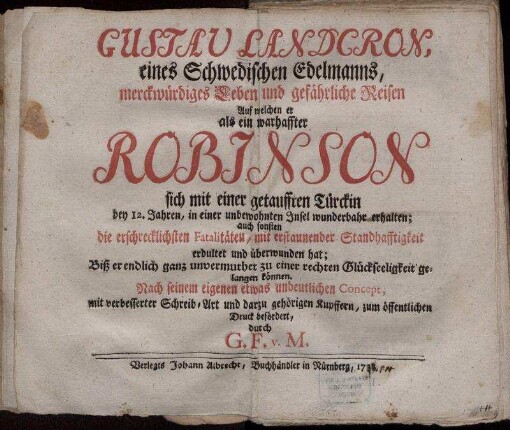 GUSTAV LANDCRON,
eines Schwedischen Edelmanns,
merckwürdiges Leben und gefährliche Reisen
Auf welchen er
als ein warhaffter
ROBINSON
sich mit einer getaufften Türckin
bey 12. Jahren, in einer unbewohnten Insel wunderbahr erhalten;
auch sonsten
die erschrecklichsten Fatalitäten, mit erstaunender Standhafftigkeit
erdultet und überwunden hat;
Biß er endlich ganz unvermuthet zu einer rechten Glückseeligkeit ge-
langen können.
Nach seinem eigenen etwas undeutlichen Concept,
mit verbesserter Schreib-Art und darzu gehörigen Kupffern, zum öffentlichen
Druck befördert,
durch
G. F. v. M.
Verlegts Johann Albrecht, Buchhändler in Nürnberg,